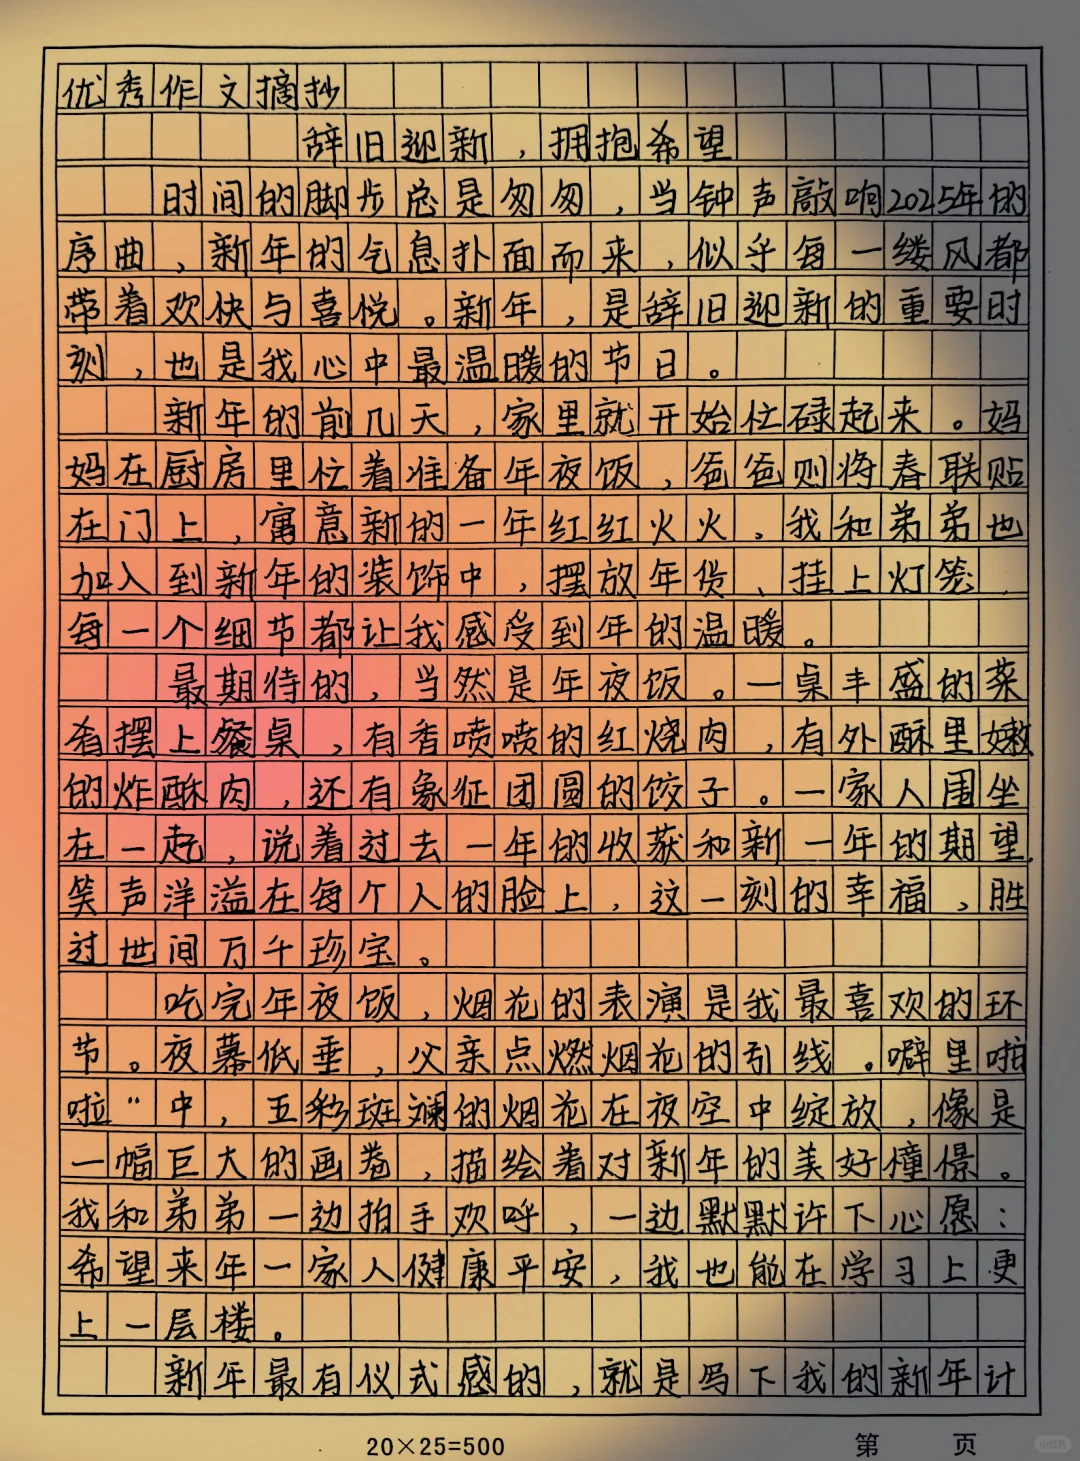 优秀作文摘抄
辞旧迎新，拥抱希望
时间的脚步总是匆匆，当钟声敲响2025年的
序曲，新年的气息扑面而来，似乎每一缕风都
带着欢快与喜悦。新年，是辞旧迎新的重要时
刻，也是我心中最温暖的节日。
新年的前几天，家里就开始忙碌起来。妈
妈在厨房里忙着准备年夜饭，爸爸则将春联贴
在门上，寓意新的一年红红火火。我和弟弟也
加入到新年的装饰中，摆放年货、挂上灯笼，
每一个细节都让我感受到年的温暖。
最期待的，当然是年夜饭。一桌丰盛的菜
肴摆上餐桌，有香喷喷的红烧肉，有外酥里嫩
的炸酥肉，还有象征团圆的饺子。一家人围坐
在一起，说着过去一年的收获和新一年的期望，
笑声洋溢在每个人的脸上，这一刻的幸福，胜
过世间万千珍宝。
吃完年夜饭，烟花的表演是我最喜欢的环
节。夜幕低垂，父亲点燃烟花的引线。噼里啪
啦“中，五彩斑斓的烟花在夜空中绽放，像是
一幅巨大的画卷，描绘着对新年的美好憧憬。
我和弟弟一边拍手欢呼，一边默默许下心愿：
希望来年一家人健康平安，我也能在学习上更
上一层楼。
新年最有仪式感的，就是写下我的新年计
20×25=500 第 页
小红书